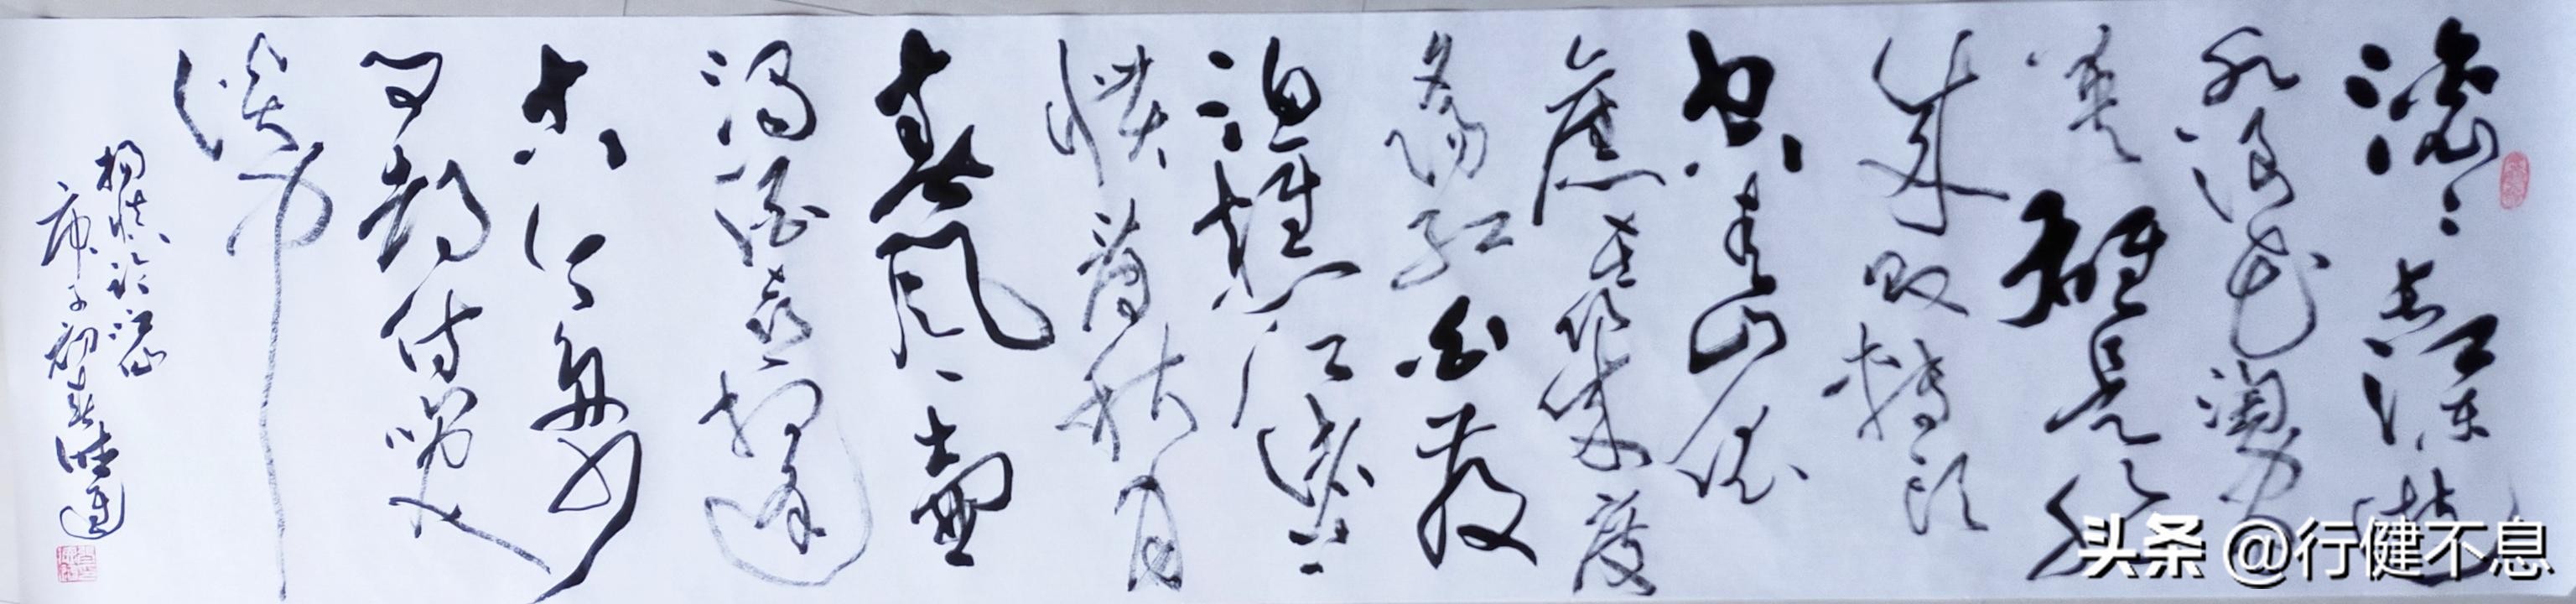 滚滚长江东逝
水浪花淘尽
英雄是非
成败转头
空青山依
舊在几度
夕阳红白发
渔樵江渚上
惯看秋月
春风一壶
浊酒喜相逢
古今多少
事都付笑
谈中
杨慎临江仙
庚子初春
头条 @行健不息